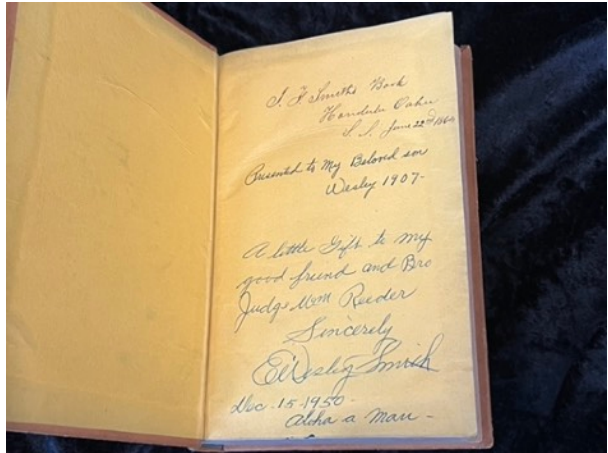 J. F. Smiths Book
Honolulu Oahu
S. I. June 22nd 1864
Presented to My Beloved son
Wesley 1907-
A little Gift to my
good friend and Bro
Judge Wm Reeder
Sincerely
E Wesley Smith
Dec. 15-1950-
Aloha a mau-